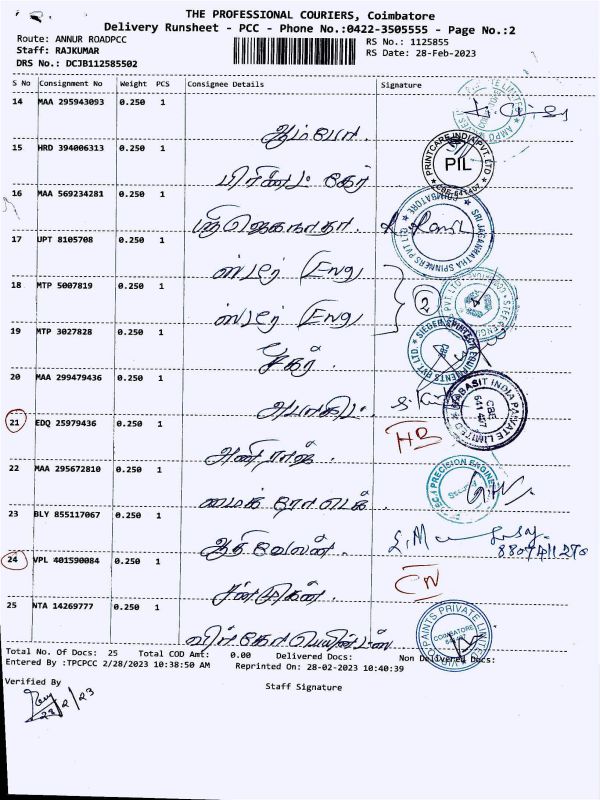 THE PROFESSIONAL COURIERS, Coimbatore
Delivery Runsheet - PCC - Phone No.:0422-3505555 - Page No.:2
Route: ANNUR ROADPCC
RS No.: 1125855
Staff: RAJKUMAR
RS Date: 28-Feb-2023
DRS No.: DCJB112585502
S No Consignment No Weight PCS Consignee Details Signature
14 MAA 295943093 0.250 1
ஆம்போ.
15 HRD 394006313 0.250 1
பிரிண்ட் கேர்
PRINTCARE INDIA PVT LTD
PIL
CBE-641407
16 MAA 569234281 0.250 1
ஸ்ரீ ஜெகநாதா.
SRI JAGANNATHA SPINNERS PVT LTD
COIMBATORE
17 UPT 8105708 0.250 1
ஸ்டீர் (Eng
18 MTP 5007819 0.250 1
2
ஸ்டீர் (Eng
19 MTP 3027828 0.250 1
SIEGER SPINTECH EQUIPMENTS PVT LTD.
சீகர்.
20 MAA 299479436 0.250 1
HABASIT INDIA PRIVATE LIMITED
CBE
641 407
21 EDQ 25979436 0.250 1
HB
22 MAA 295672810 0.250 1
PRECISION ENGINE
23 BLY 855117067 0.250 1
ஆதிவேலன்.
24 VPL 401590084 0.250 1
CN
சண்முகன்.
25 NTA 14269777 0.250 1
PAINTS PRIVATE LIMITED
COIMBATORE
Total No. Of Docs: 25 Total COD Amt: 0.00 Delivered Docs: Non Delivered Docs:
Entered By :TPCPCC 2/28/2023 10:38:50 AM Reprinted On: 28-02-2023 10:40:39
Verified By
Staff Signature
28/2/23